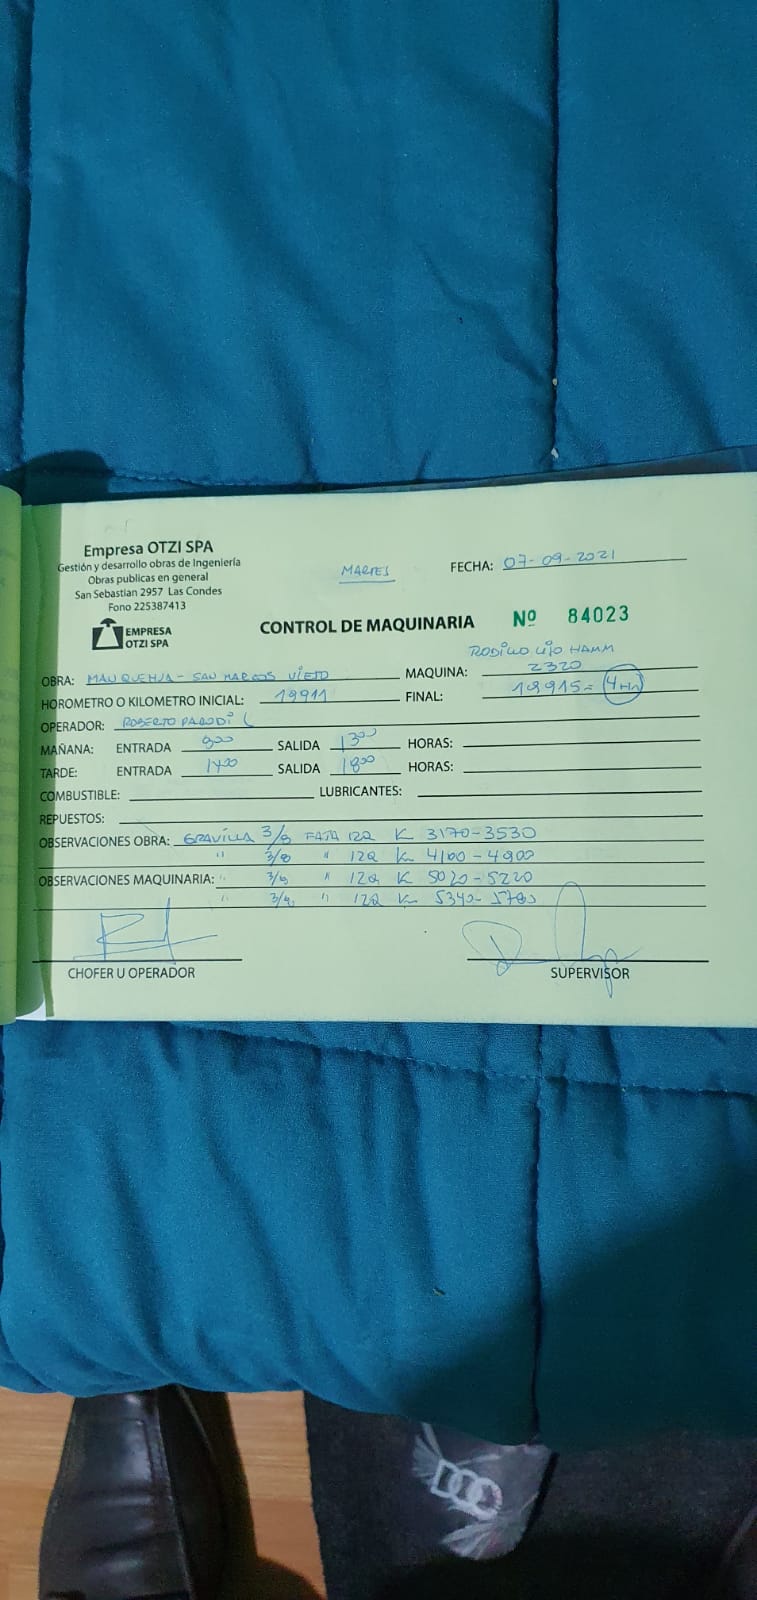 Empresa OTZI SPA
Gestión y desarrollo obras de Ingeniería
Obras publicas en general
San Sebastian 2957 Las Condes
Fono 225387413
EMPRESA
OTZI SPA
MARTES
FECHA: 07-09-2021
CONTROL DE MAQUINARIA Nº 84023
RODILLO LISO HAMM
OBRA: MAUQUENUA - SAN MARCOS VIEJO MAQUINA: 2320
HOROMETRO O KILOMETRO INICIAL: 19911 FINAL: 19915= 4Hr
OPERADOR: ROBERTO PARODI L
MAÑANA: ENTRADA 800 SALIDA 1300 HORAS:
TARDE: ENTRADA 1400 SALIDA 1800 HORAS:
COMBUSTIBLE: LUBRICANTES:
REPUESTOS:
OBSERVACIONES OBRA: GRAVILLA 3/8 FAJA IZQ K 3170-3530
" 3/8 " IZQ Km 4100-4900
OBSERVACIONES MAQUINARIA: " 3/8 " IZQ K 5020-5220
" 3/8 " IZQ Km 5340-5780
CHOFER U OPERADOR SUPERVISOR